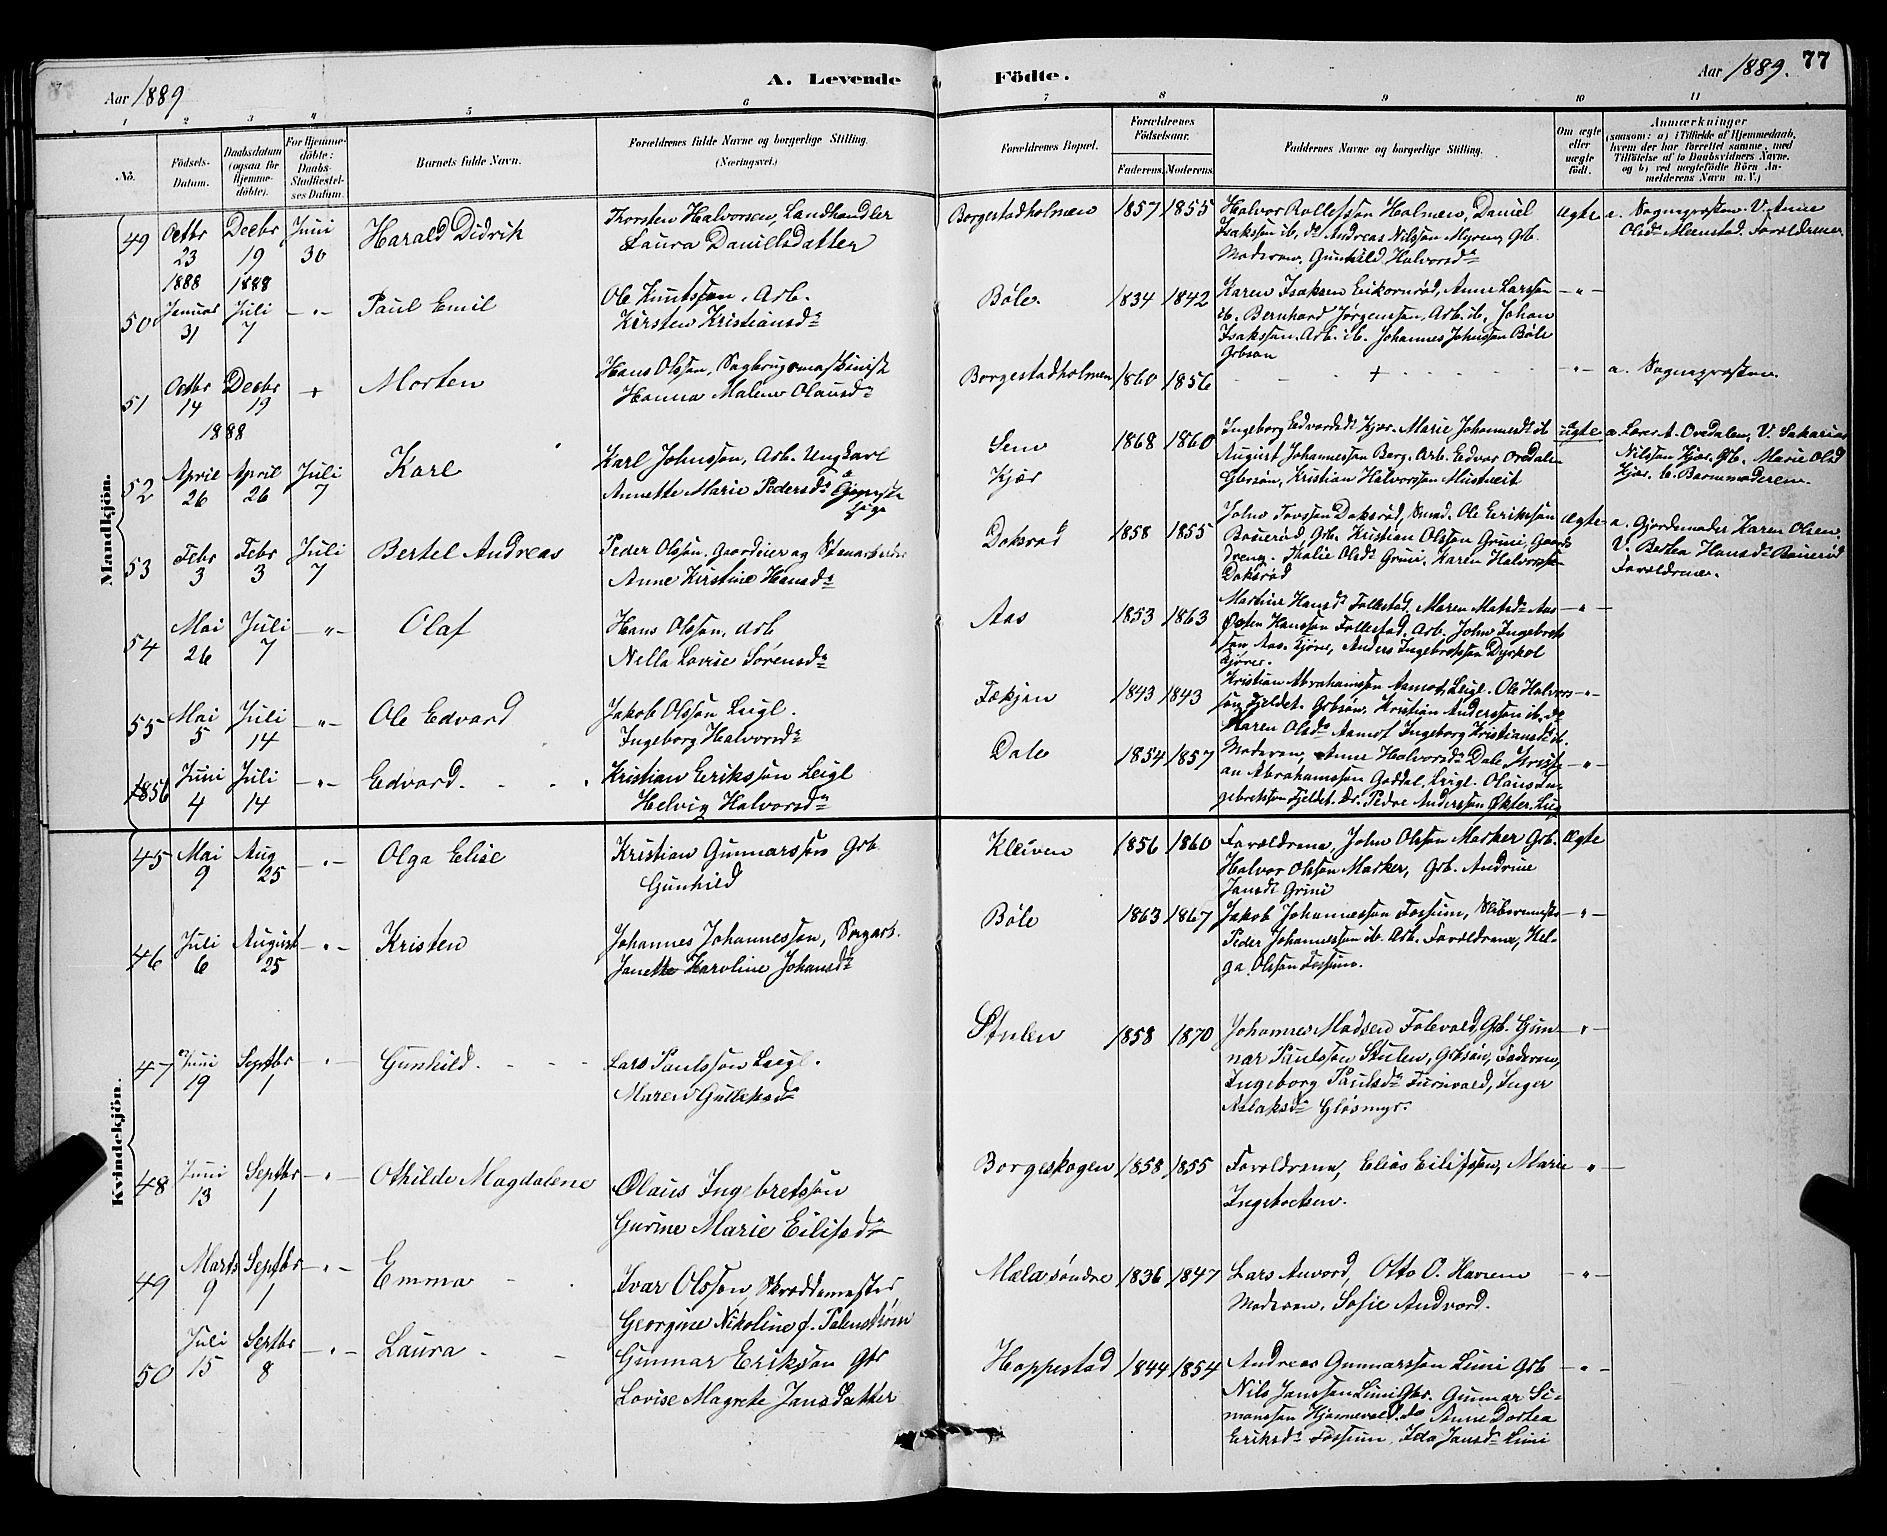 77
Aar 1889
A. Levende Födte.
Aar 1889.
1 2 3 4 5 6 7 8 9 10 11
No.
Födsels-Datum.
Daabsdatum (ogsaa for Hjemmedöbte).
For Hjemmedöbte: Daabs-Stadfæstelses Datum.
Barnets fulde Navn.
Forældrenes fulde Navne og borgerlige Stilling. (Næringsvei.)
Forældrenes Bopæl.
Forældrenes Födselsaar.
Faderens Moderens
Faddernes Navne og borgerlige Stilling.
Om ægte eller uægte født.
Anmærkninger
(saasom: a) i Tilfælde af Hjemmedaab, hvem der har forrettet samme, med Tilføielse af to Daabsvidners Navne, og b) ved uægtefødte Börn Anmelderens Navn m. V.)
Mandkjön.
49 Octbr 23 1888 Decbr 19 1888 Juni 30 Harald Didrik
Thorsten Halvorsen, Landhandler
Laura Danielsdatter
Borgestadholmen 1857 1855
Halvor Rollefsson Holmen, Daniel
Isaksson ib, do Andreas Nilsson Myren, Gb.
Moderen, Gunhild Halvorsd.
ægte
a. Sognepresten. V. Anne
Olsd. Menstad. Forældrene.
50 Januar 31 Juli 7 -"- Paul Emil
Ole Knutsson, Arb.
Kirsten Kristiansd.
Bøle. 1834 1842
Karen Isaksen Eikornrød, Anne Larsson
ib. Bernhard Jørgensson, Arb. ib. Johan
Isaksson Arb. ib. Johannes Johnsson Bøle
Grbsøn
-"-
51 Octbr 14 Decbr 19 1888 + Morten
Hans Olsson, Sagbrugsmaskinist
Hanna Malene Olausd.
Borgestadholmen 1860 1856
+
-"-
a. Sognepresten.
52 April 26 April 26 Juli 7 Karl
Karl Johnsson, Arb. Ungkarl
Annette Marie Pedersd. Pige
Sem
Kjær
1868 1860
Ingeborg Edvardsd. Kjær. Marie Johannesd. ib
August Johannesson Borg. Arb. Edvar Ovdalen
Gbrsøn, Kristian Halvorsson Mustveit
uægte
a Lærer A. Ovedalen, V. Sakarias
Nilsson Kjær, Gb. Marie Olsd
Kjær. b. Barnemoderen.
53 Febr 3 Febr 3 Juli 7 Bertel Andreas
Peder Olsson. Gaardeier og Stenarbeider
Anne Kirstine Hansd.
Doksrød 1858 1855
John Torsson Doksrød, Smed. Ole Eriksson
Bøuerød, Grb. Kristian Olsson Grini, Gaards
dreng. Thalie Olsd. Grini, Karen Halvorsson
Doksrød
ægte
a. Gjordemoder Karen Olsen.
V. Berthe Hansd. Bøuerød
Forældrene.
54 Mai 26 Juli 7 -"- Olaf
Hans Olsson, Arb
Nella Lovise Sørensd.
Aas 1853 1863
Martine Hansd. Follestad. Maren Matsd. Aas
Østen Hansson Follestad, Arb. John Ingebret-
son Aas. Kjører, Anders Ingebretsson Dyrkol
Kjører.
-"-
55 Mai 5 Juli 14 -"- Ole Edvard
Jakob Olsson Leigl.
Ingeborg Halvorsd.
Fækjen 1843 1843
Kristian Abrahamsson Aamot, Leigl. Ole Halvors-
son Fjeldet. Grbsøn, Kristian Andersson ib, do
Karen Olsd. Aamot Ingeborg Kristiansd. ib.
-"-
56 Juni 4 Juli 14 -"- Edvard.
Kristian Eriksson Leigl
Helvig Halvorsd.
Dale 1854 1857
Moderen, Anne Halvorsd. Dale, Kristi-
an Abrahamsson Goddal, Leigl. Olaus In-
gebretsson Fjeldet. Dr. Peder Andersson Økter, Leig
-"-
Kvindekjön.
45 Mai 9 Aug 25 -"- Olga Elise
Kristian Gunnarsson Grb.
Gunhild
Kleiven 1856 1860
Forældrene, John Olsson Marker Grb.
Halvor Olsson Marker, Grb. Andrine
Jansd. Grini
ægte
46 Juli 6 August 25 -"- Kristen
Johannes Johannesson, Borgarb.
Janette Karoline Johansd.
Bøle 1863 1867
Jakob Johannesson Fossum, Slibermester
Peder Johannesson ib. Arb. Forældrene, Hel-
ga Olsson Fossum.
-"-
47 Juni 19 Septbr 1 -"- Gunhild.
Lars Paulsson Leigl.
Maren Gulleksd.
Stulen 1858 1870
Johannes Madsen Folevald, Grb. Gun-
nar Paulsson Stulen, Grbsøn, Faderen,
Ingeborg Paulsd. Furuvald, Inger
Aslaksd. Gløsmyr.
-"-
48 Juni 13 Septbr 1 -"- Othilde Magdalene
Olaus Ingebretsson
Gurine Marie Eilifsd.
Borgeskogen 1858 1855
Forældrene, Elias Eilifssen, Marie
Ingebretsen.
-"-
49 Marts 9 Septbr 1 -"- Emma
Ivar Olsson, Skræddermester
Georgine Nikoline f. Palmstrøm
Mæla søndre 1836 1847
Lars Anvord, Otto O. Haviem
Moderen, Sofie Andvord.
-"-
50 Juli 15 Septbr 8 -"- Laura
Gunnar Eriksøn Gbr
Lovise Magrete Jansdatter
Hoppestad 1844 1854
Andreas Gunnarsson Limi Grb
Nils Jansson Limi Gbr. Gunnar Si-
monsson Hjømevold. do Anne Dortea
Eriksd. Fossum, Ida Jansd. Limi
-"-